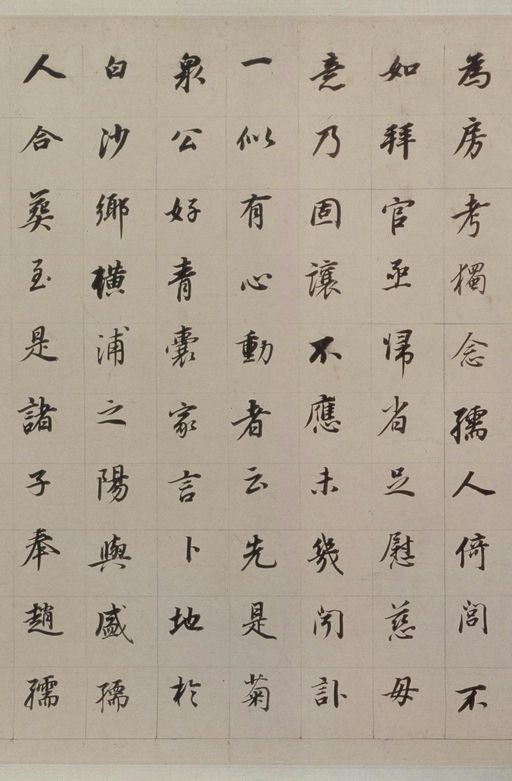 為房考獨念孺人倚閭不
如拜官亟歸省足慰慈母
意乃固讓不應未幾聞訃
一似有心動者云先是菊
泉公好青囊家言卜地於
白沙鄉橫浦之陽與盛孺
人合葵至是諸子奉趙孺